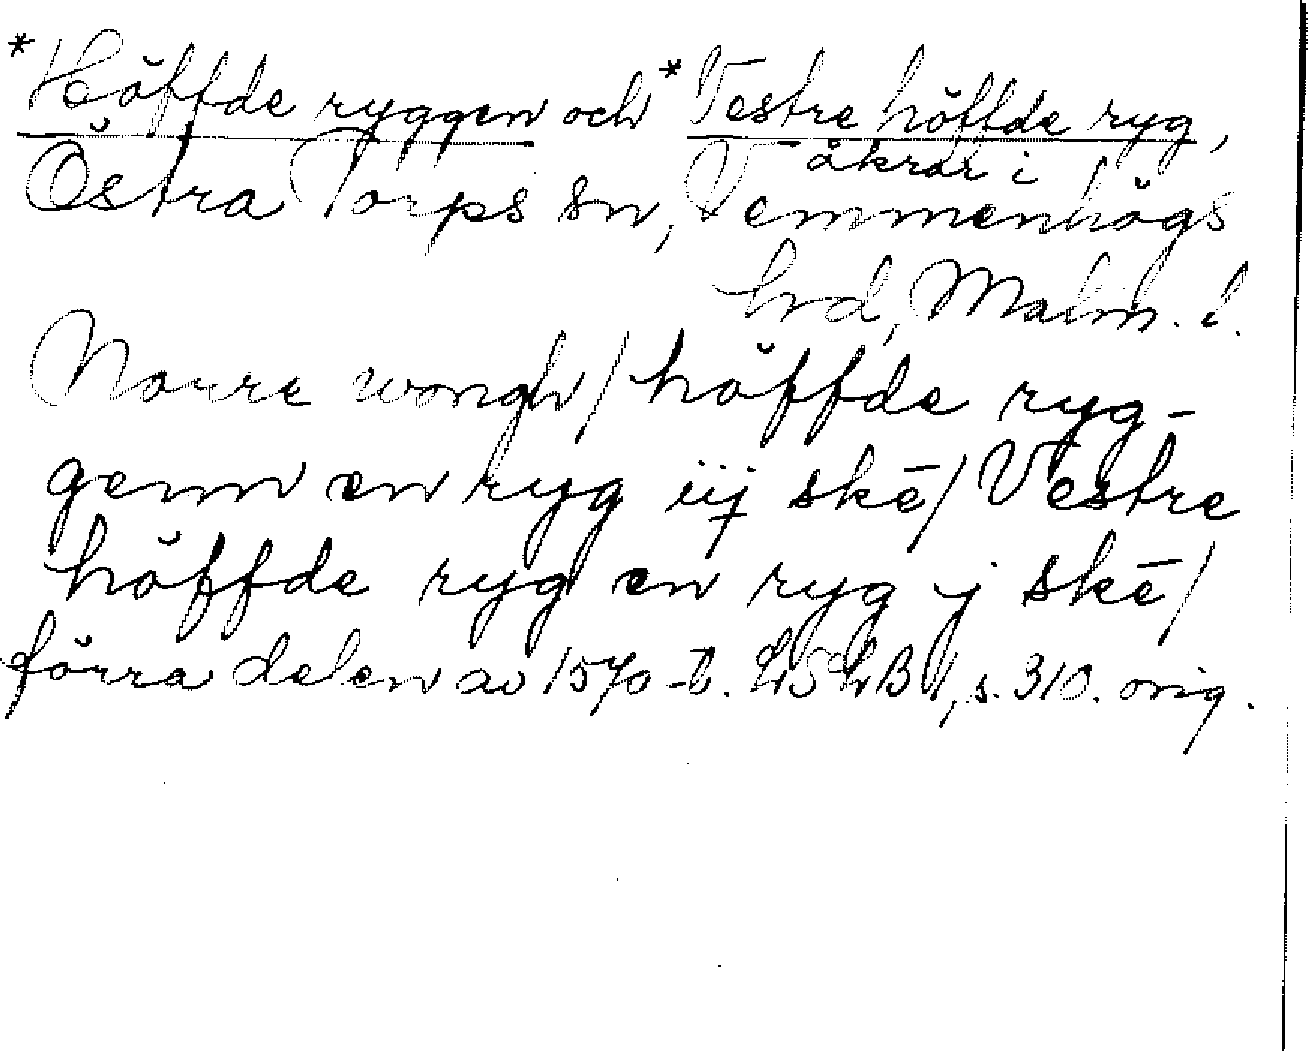 *Höffde ryggen och *Vestre höffde ryg,
åkrar i
Östra Torps sn, Vemmenhögs
hd, Malm. l.
Norre wongh/ höffde ryg-
genn en ryg iij skē/ Vestre
höffde ryg en ryg j skē/
förra delen av 1570-t. LSLB 1, s. 310. orig.